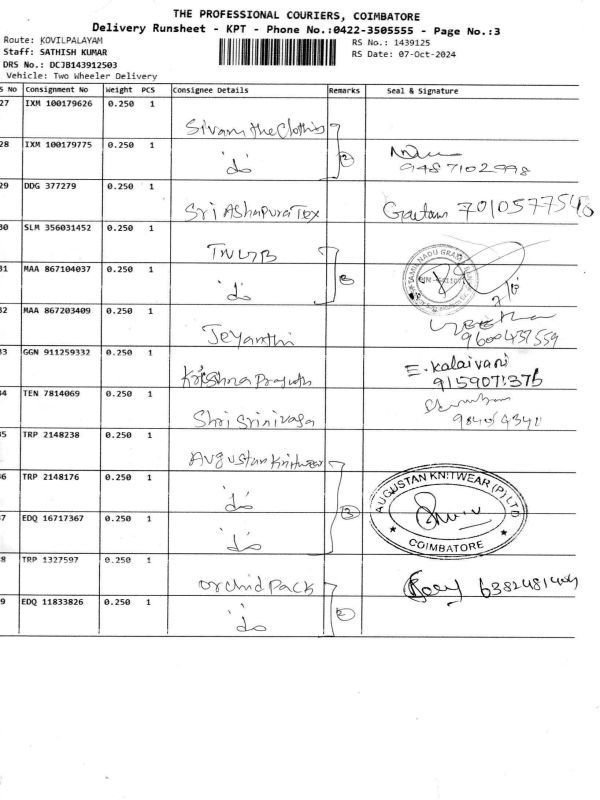 THE PROFESSIONAL COURIERS, COIMBATORE
Delivery Runsheet - KPT - Phone No.:0422-3505555 - Page No.:3
Route: KOVILPALAYAM
RS No.: 1439125
Staff: SATHISH KUMAR
RS Date: 07-Oct-2024
DRS No.: DCJB143912503
Vehicle: Two Wheeler Delivery
S No Consignment No Weight PCS Consignee Details Remarks Seal & Signature
27 IXM 100179626 0.250 1 Sivam the Clothing
28 IXM 100179775 0.250 1 'do' 2 9487102998
29 DDG 377279 0.250 1 Sri Ashapura Tex Goutam
30 SLM 356031452 0.250 1 TNGB TAMIL NADU GRAMA
31 MAA 867104037 0.250 1 'do'
32 MAA 867203409 0.250 1 Jeyanthi 9600437559
33 GGN 911259332 0.250 1 Krishna E. Kalaivani 9159071376
34 TEN 7814069 0.250 1 Shri Srinivasa
35 TRP 2148238 0.250 1 Augustan Knitwear
36 TRP 2148176 0.250 1 'do' AUGUSTAN KNITWEAR (P) LTD
37 EDQ 16717367 0.250 1 'do' 3 COIMBATORE
38 TRP 1327597 0.250 1 Orchid Pack
39 EDQ 11833826 0.250 1 'do' 2